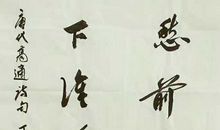 愁前
下谁
唐代高適诗句